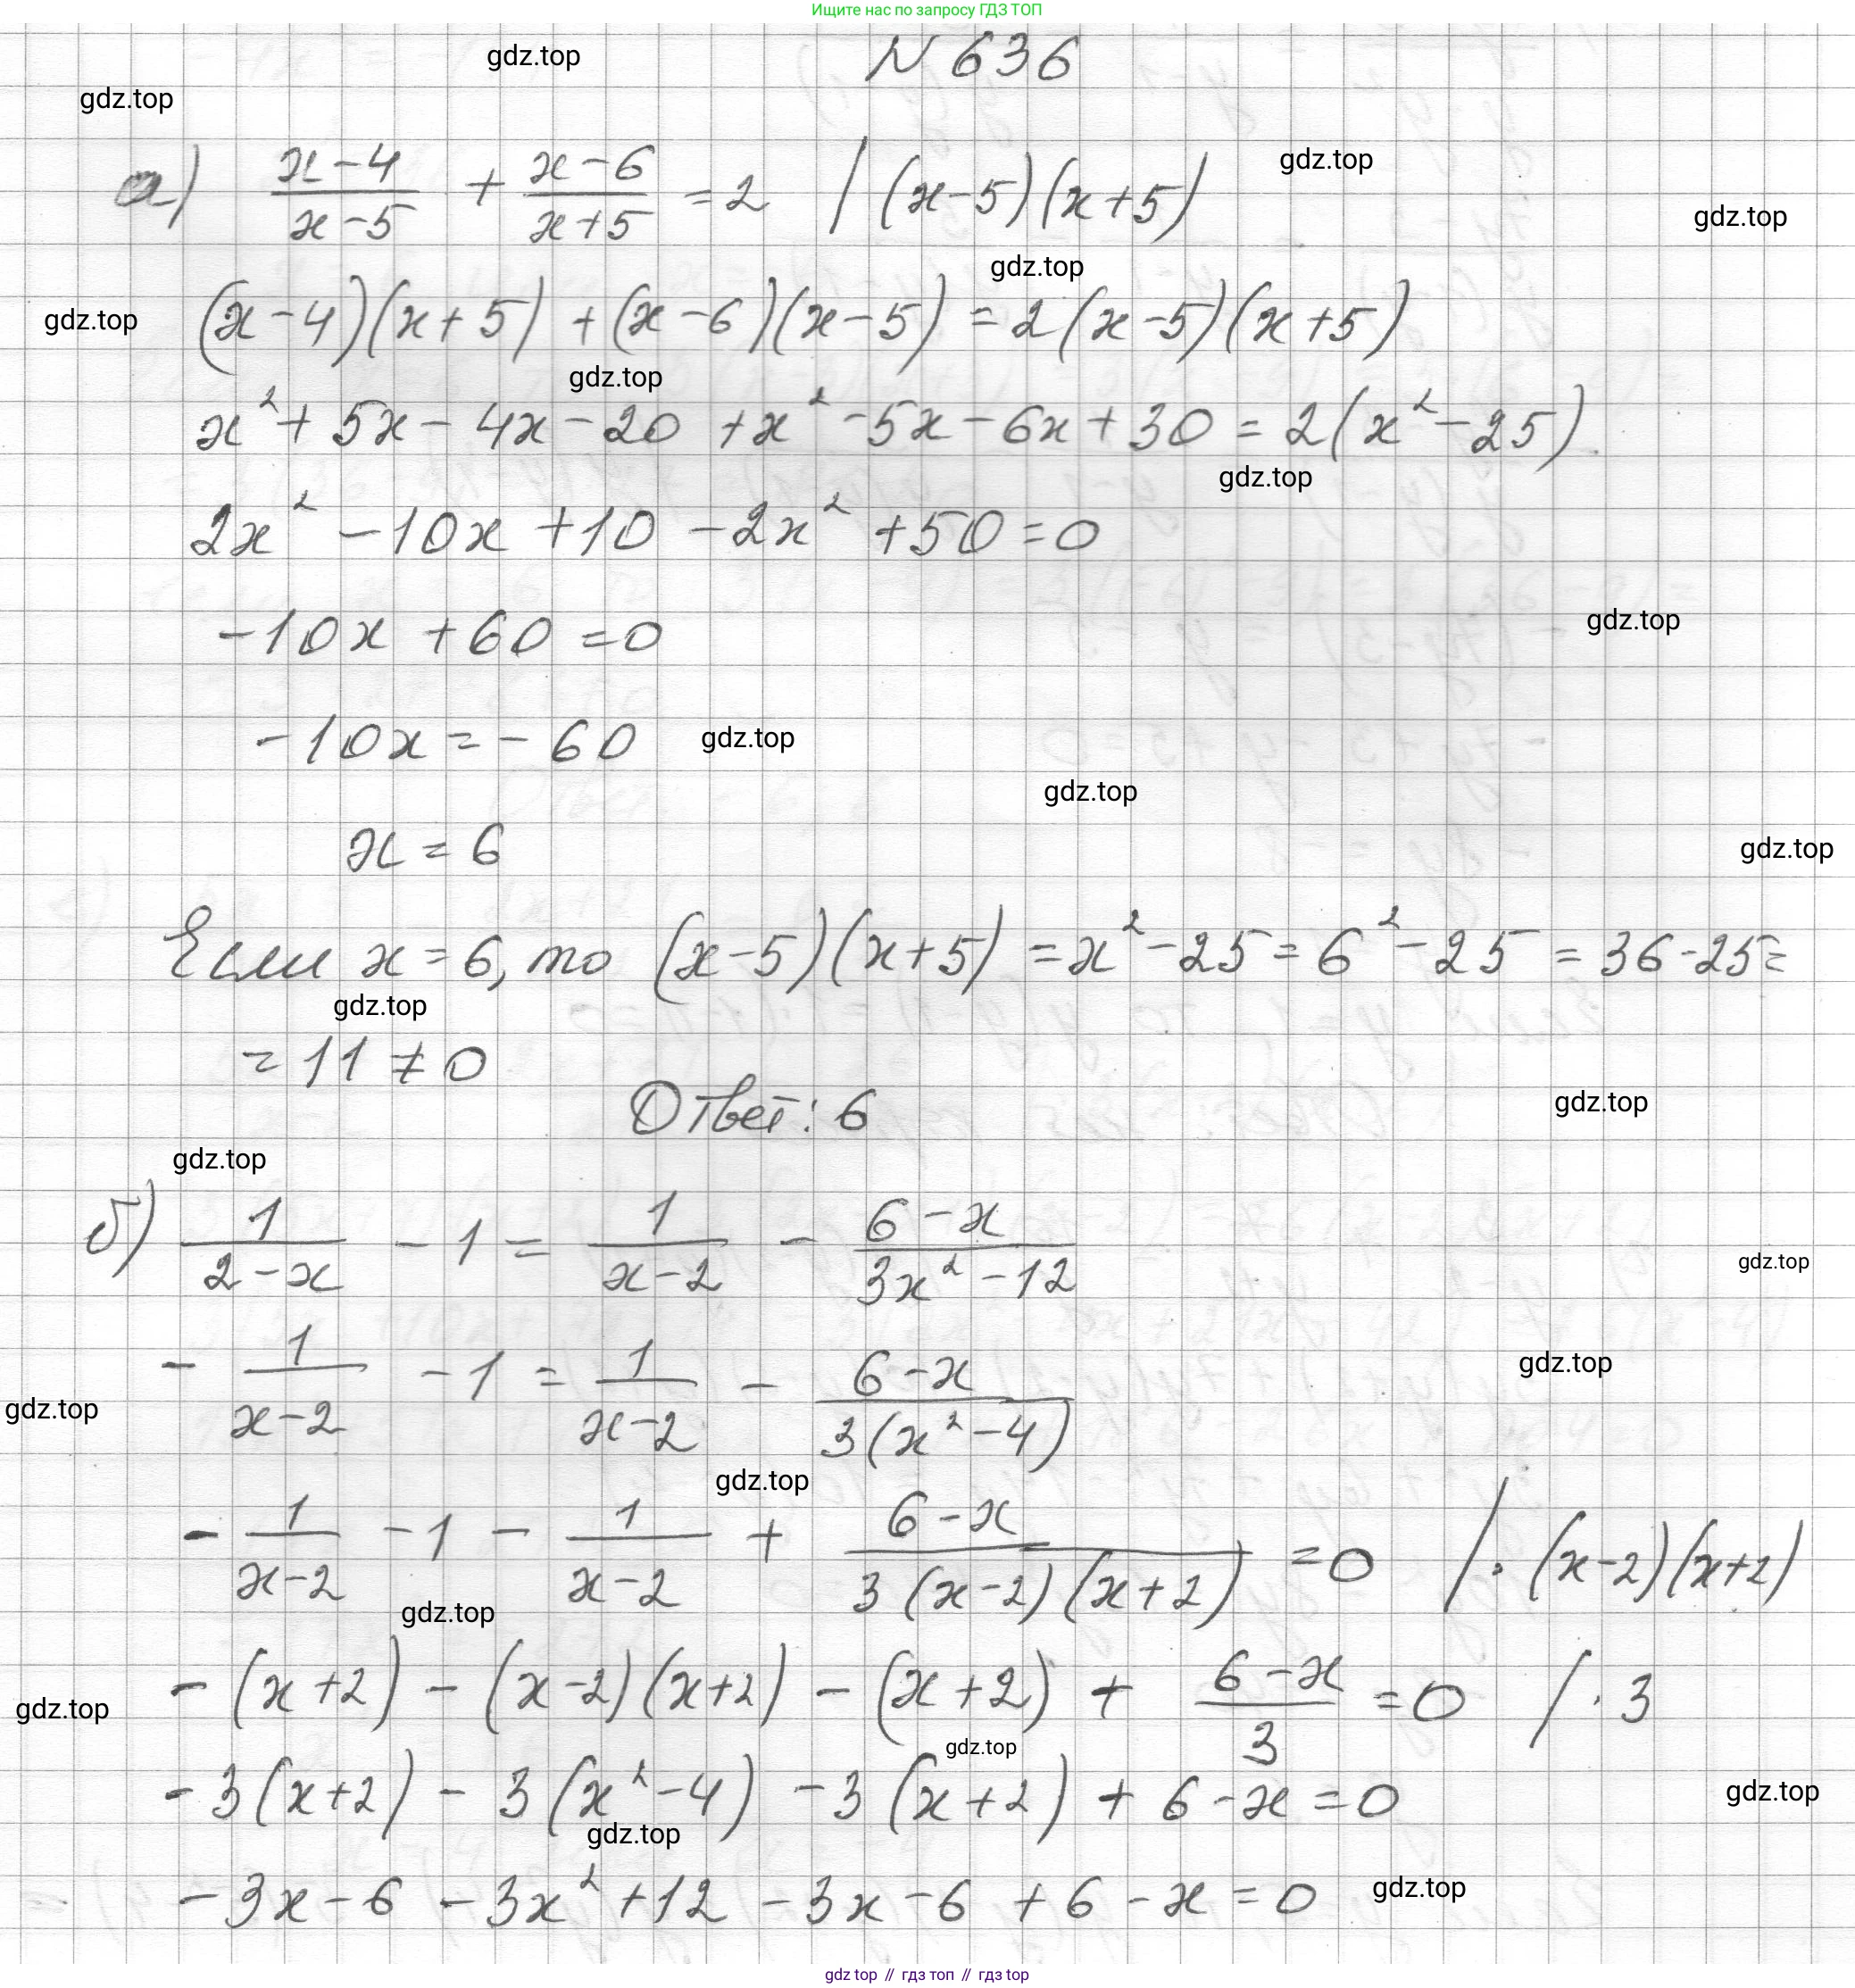 Ищите нас по запросу ГДЗ ТОП
N 636
gdz.top
gdz.top
а) (x-4)/(x-5) + (x-6)/(x+5) = 2 | (x-5)(x+5)
gdz.top
gdz.top
gdz.top
(x-4)(x+5) + (x-6)(x-5) = 2(x-5)(x+5)
gdz.top
gdz.top
x² + 5x - 4x - 20 + x² - 5x - 6x + 30 = 2(x² - 25)
gdz.top
2x² - 10x + 10 - 2x² + 50 = 0
-10x + 60 = 0
gdz.top
-10x = -60
gdz.top
gdz.top
x = 6
gdz.top
Если x = 6, то (x-5)(x+5) = x² - 25 = 6² - 25 = 36 - 25 =
gdz.top
= 11 ≠ 0
Ответ: 6
gdz.top
gdz.top
б) 1/(2-x) - 1 = 1/(x-2) - (6-x)/(3x²-12)
gdz.top
- 1/(x-2) - 1 = 1/(x-2) - (6-x)/(3(x²-4))
gdz.top
gdz.top
gdz.top
- 1/(x-2) - 1 - 1/(x-2) + (6-x)/(3(x-2)(x+2)) = 0 | · (x-2)(x+2)
gdz.top
- (x+2) - (x-2)(x+2) - (x+2) + (6-x)/3 = 0 | · 3
gdz.top
gdz.top
- 3(x+2) - 3(x²-4) - 3(x+2) + 6 - x = 0
gdz.top
gdz.top
- 3x - 6 - 3x² + 12 - 3x - 6 + 6 - x = 0
gdz.top
gdz top // гдз топ // гдз top